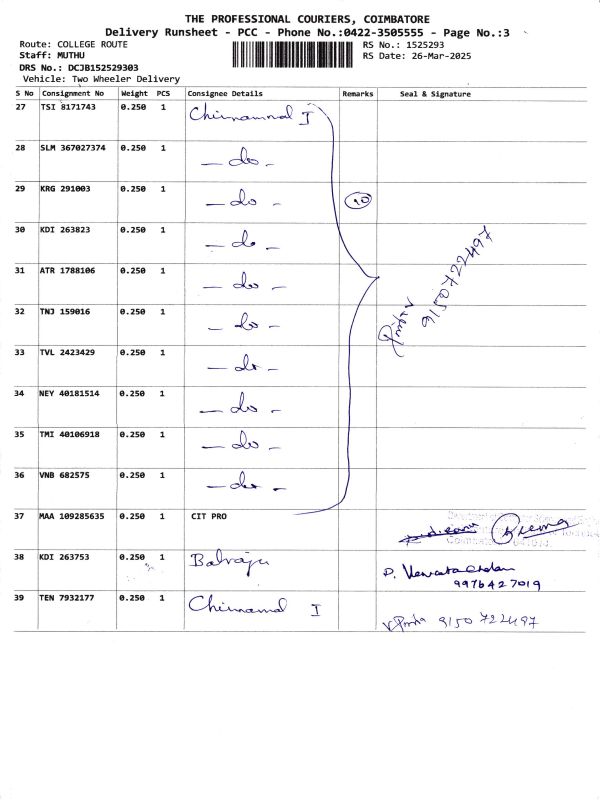 THE PROFESSIONAL COURIERS, COIMBATORE
Delivery Runsheet - PCC - Phone No.:0422-3505555 - Page No.:3
Route: COLLEGE ROUTE
RS No.: 1525293
Staff: MUTHU
RS Date: 26-Mar-2025
DRS No.: DCJB152529303
Vehicle: Two Wheeler Delivery
S No Consignment No Weight PCS Consignee Details Remarks Seal & Signature
27 TSI 8171743 0.250 1 I
28 SLM 367027374 0.250 1 - do -
29 KRG 291003 0.250 1 - do - 10
30 KDI 263823 0.250 1 - do -
31 ATR 1788106 0.250 1 - do -
9150722497
32 TNJ 159016 0.250 1 - do -
33 TVL 2423429 0.250 1 - do -
34 NEY 40181514 0.250 1 - do -
35 TMI 40106918 0.250 1 - do -
36 VNB 682575 0.250 1 - do -
37 MAA 109285635 0.250 1 CIT PRO
38 KDI 263753 0.250 1 Balraju
9976427019
39 TEN 7932177 0.250 1 I 9150 722497